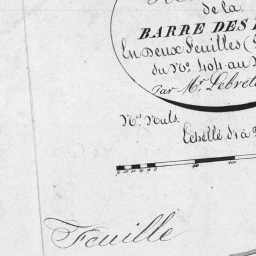 de la
BARRE DES
En deux Feuilles
du N.º 404 au
Par M.r Lebret
N.os Nuls.
Echelle d
Feuille